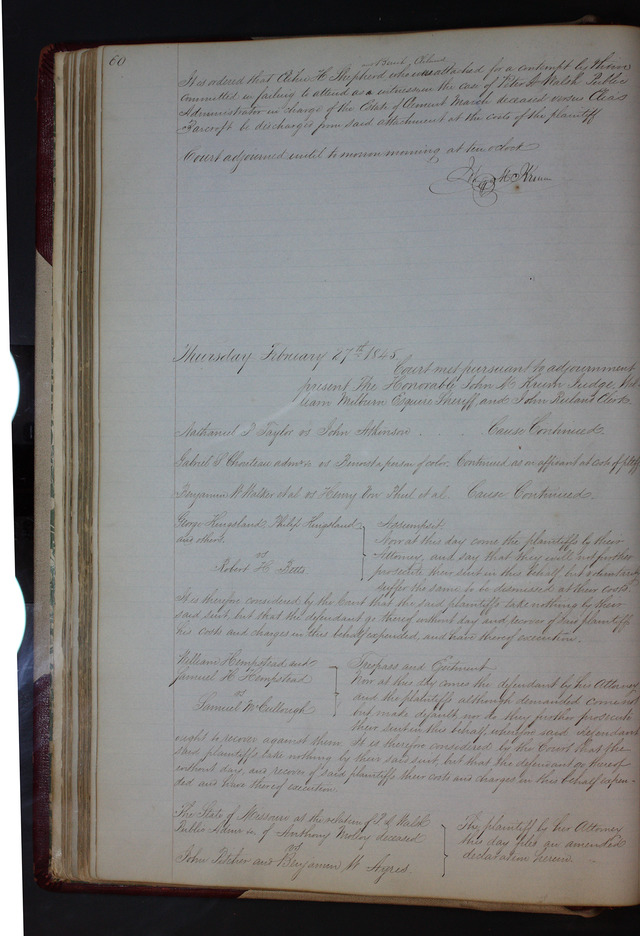 60
It is ordered that H Shepherd who was attached for a contempt by
committed in failing to attend as a witness in the case of Peter D Walsh Public
Administrator in charge of the Estate of Clement deceased versus
to be discharged from said attachment at the costs of the plaintiff
Court adjourned until to morrow morning at ten oclock
John M Krum
Thursday February 27th 1845
Court met pursuant to adjournment
present The Honorable John M Krum Judge, Wil
liam Milburn Esquire Sheriff and John Ruland Clerk.
Nathaniel P Taylor vs John Atkinson . Cause Continued
Gabriel S Chouteau admr vs a person of color. Continued as on affidavit at costs of
Benjamin W Walker et al vs Henry Von Phul et al. Cause Continued.
George Kingsland, Philip Kingsland
and others.
vs
Robert H Betts
Assumpsit
Now at this day come the plaintiffs by their
Attorney, and say that they will not further
prosecute their suit in this behalf but voluntarily
suffer the same to be dismissed at their costs.
It is therefore considered by the Court that the said plaintiffs take nothing by their
said suit, but that the defendant go thereof without day and recover of said plaintiffs
his costs and charges in this behalf expended, and have thereof execution.
William Hempstead and
Samuel H Hempstead
vs
Samuel McCullough
Trespass and Ejectment
Now at this day comes the defendant by his Attorney
and the plaintiffs although demanded come not
but make default nor do they further prosecute
their suit in this behalf, wherefore said defendant
ought to recover against them. It is therefore considered by the Court that the
said plaintiffs take nothing by their said suit, but that the defendant go thereof
without day, and recover of said plaintiffs their costs and charges in this behalf expen
ded and have thereof execution.
The State of Missouri at the relation of P D Walsh
Public Admr in of Anthony deceased
vs
John Pitcher and Benjamin W Ayres.
The plaintiff by her Attorney
this day files an amended
declaration herein.